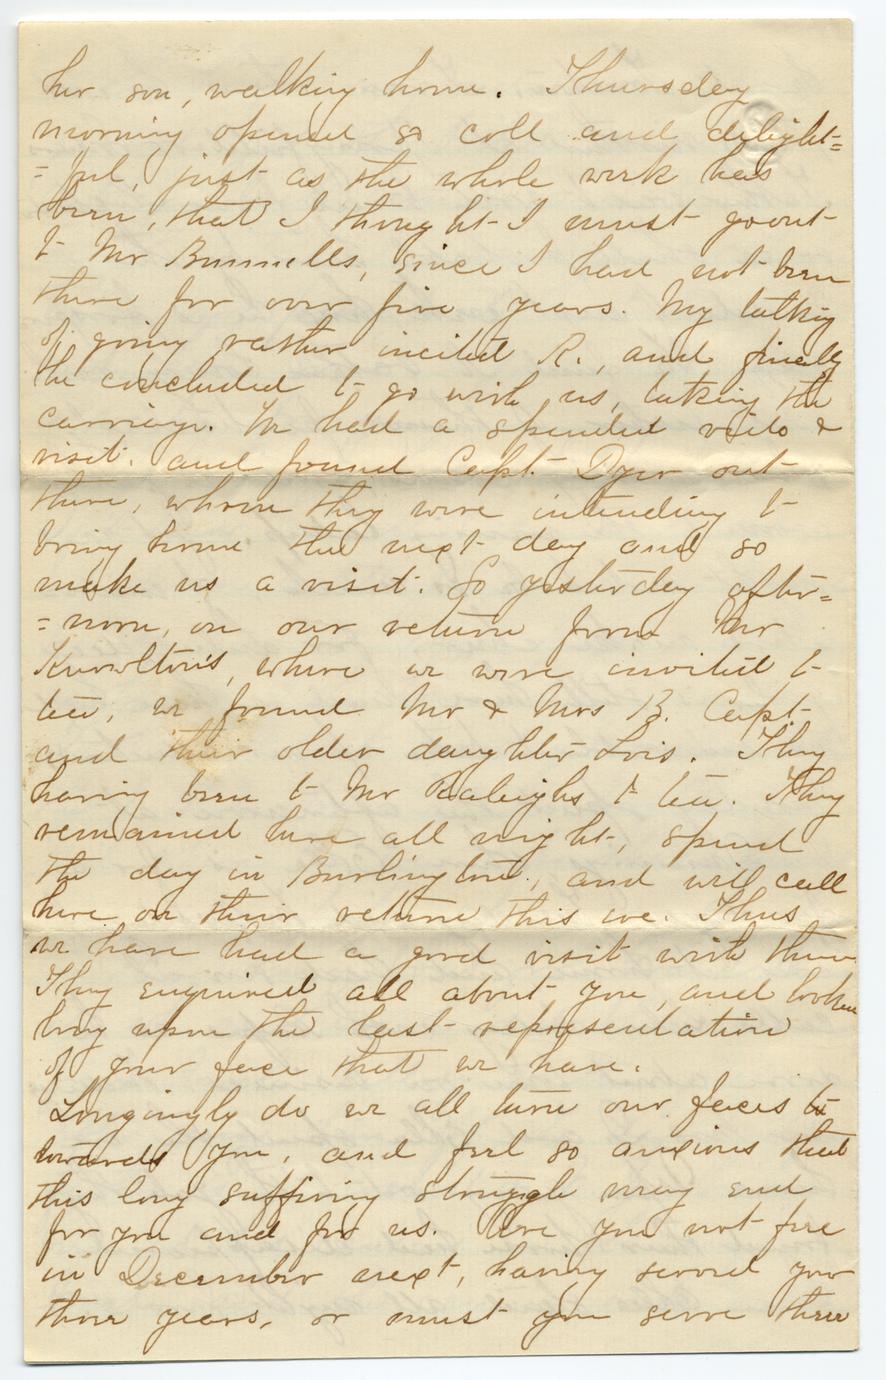 her son, walking home. Thursday
morning opened so cold and delight=
=ful, just as the whole week has
been, that I thought I must go out
to Mr Bunnells, since I had not been
there for over five years. My talking
of going rather incited R., and finally
he concluded to go with us, taking the
carriage. We had a splended &
visit. and found Capt. Dyer out
there, whom they were intending to
bring home the next day and so
make us a visit. So yesterday after=
=noon, on our return from Mr
Knowlton's, where we were invited to
tea, we found Mr & Mrs B. Capt.
and their older daughter Lois. They
having been to Mr Raleighs to tea. They
remained here all night, spend
the day in Burlington, and will call
here on their return this eve. Thus
we have had a good visit with them
They enquired all about you, and looked
long upon the last representation
of your face that we have.
Longingly do we all turn our faces to
towards you, and feel so anxious that
this long suffering struggle may end
for you and for us. Are you not free
in December next, having served your
three years, or must you serve three